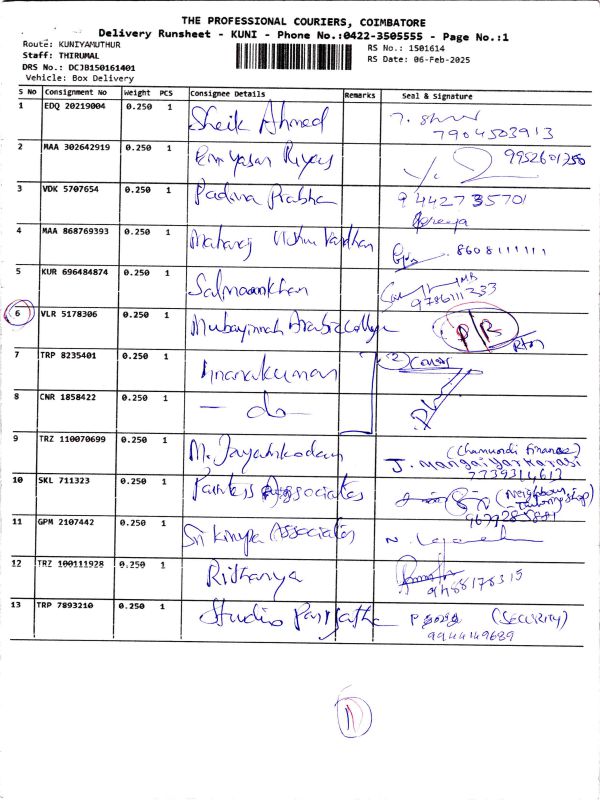 THE PROFESSIONAL COURIERS, COIMBATORE
Delivery Runsheet - KUNI - Phone No.:0422-3505555 - Page No.:1
Route: KUNIYAMUTHUR
Staff: THIRUMAL
DRS No.: DCJB150161401
Vehicle: Box Delivery
RS No.: 1501614
RS Date: 06-Feb-2025
S No Consignment No Weight PCS Consignee Details Remarks Seal & Signature
1 EDQ 20219004 0.250 1 Sheik Ahmed
7904503913
2 MAA 302642919 0.250 1 9952601250
3 VDK 5707654 0.250 1 Padma Prabha 9442735701
4 MAA 868769393 0.250 1 Vishnu Vardhan 8608111111
5 KUR 696484874 0.250 1 Salmaankhan
9786111333
6 VLR 5178306 0.250 1 Mubayinnah Arabic College
7 TRP 8235401 0.250 1 (2) Cover
8 CNR 1858422 0.250 1 - do -
9 TRZ 110070699 0.250 1 M. Jayankodan (Chamundi Finance)
J. Mangaiyarkarasi
10 SKL 711323 0.250 1 Painters Associates (Neighbour
Tailoring shop)
11 GPM 2107442 0.250 1 Sri Krupa Associates
12 TRZ 100111928 0.250 1 Rithanya
9488178315
13 TRP 7893210 0.250 1 Studio Parijatha (SECURITY)
9944149689